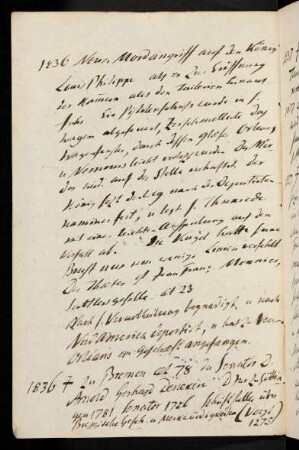 1836 Neuer Mordangriff auf den König
Louis Philippe als er zur Eröffnung
der Kammern aus den Tuilerien heraus
fuhr. Ein Pistolenschuß wurde in s.
Wagen abgefeuert, zerschmetterte das
Wagenfenster, durch dessen Gläser Orleans
u Nemours leicht verletzt wurden. Der Mör
der wird auf der Stelle verhaftet. Der
König setzt den Weg nach der Deputirten
kammer fort, u liest s. Thronrede
mit einer leichten Anspielung auf den
Vorfall ab. Die Kugel hatte seine
Brust nur um wenige Linien verfehlt
Der Thäter ist Jean Franz Meunier,
Sattlergeselle. at 23
Nach s. Verurtheilung begnadigt, u nach
Nord America deportirt, u hat zu Neu-
Orleans ein Geschäft angefangen.
1836 † zu Bremen aet 78 der Senator D.
Arnold Gerhard Deneken
1781 Senator 1786 Schriftsteller über
Bremische Gesch. u Merkwürdigkeiten (Vorzgl
1273)